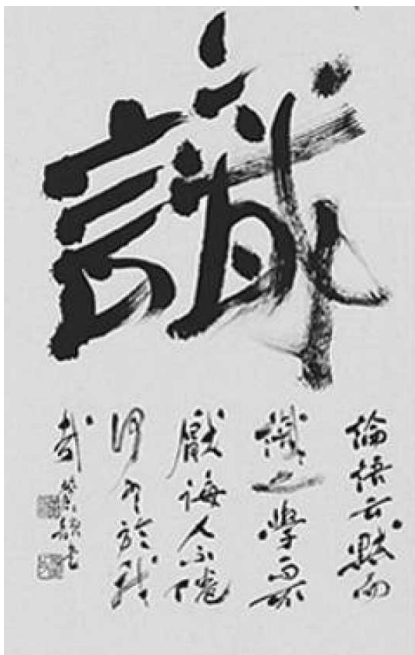 識
論語云默而
識之學而不
厭誨人不倦
何有於我
哉 書